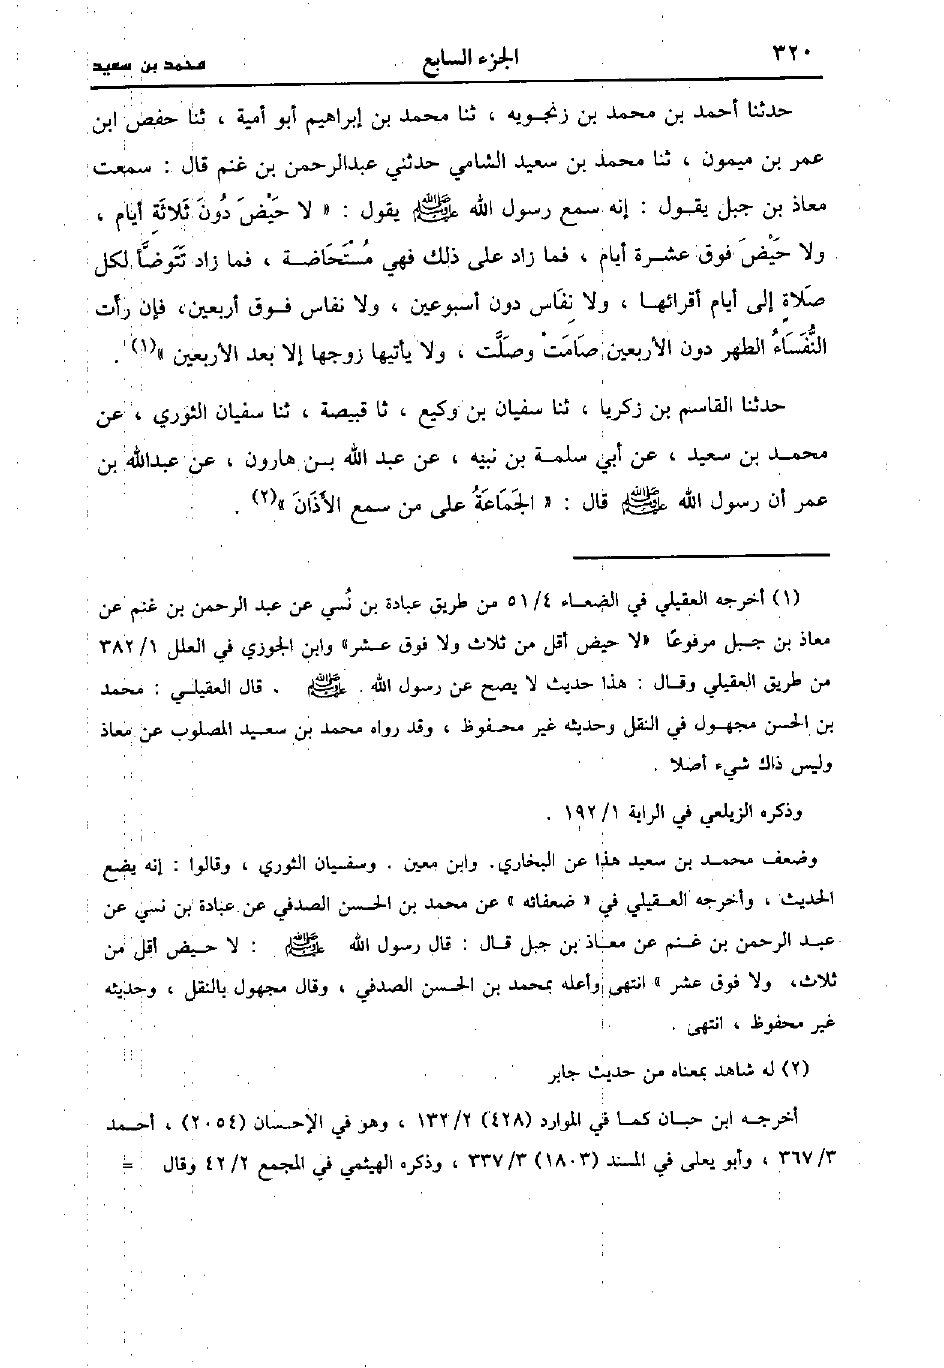 ٣٢٠ الجزء السابع محمد بن سعيد
حدثنا أحمد بن محمد بن زنجويه ، ثنا محمد بن إبراهيم أبو أمية ، ثنا حفص ابن
عمر بن ميمون ، ثنا محمد بن سعيد الشامي حدثني عبدالرحمن بن غنم قال : سمعت
معاذ بن جبل يقول : إنه سمع رسول الله ﷺ يقول : « لا حَيْضَ دُونَ ثَلاثَةِ أيام ،
ولا حَيْضَ فوق عشرة أيام ، فما زاد على ذلك فهي مُسْتَحَاضة ، فما زاد تَتَوضَّأ لكل
صَلاةٍ إلى أيام أقرائها ، ولا نِفَاس دون أسبوعين ، ولا نفاس فوق أربعين، فإن رأت
النُّفَسَاءُ الطهر دون الأربعين صَامَتْ وصلَّت ، ولا يأتيها زوجها إلا بعد الأربعين »(١) .
حدثنا القاسم بن زكريا ، ثنا سفيان بن وكيع ، ثا قبيصة ، ثنا سفيان الثوري ، عن
محمد بن سعيد ، عن أبي سلمة بن نبيه ، عن عبد الله بن هارون ، عن عبدالله بن
عمر أن رسول الله ﷺ قال : « الجَمَاعَةُ على من سمع الأَذَانَ »(٢) .
(١) أخرجه العقيلي في الضعاء ٤/ ٥١ من طريق عبادة بن نُسي عن عبد الرحمن بن غنم عن
معاذ بن جبل مرفوعًا «لا حيض أقل من ثلاث ولا فوق عشر» وابن الجوزي في العلل ١/ ٣٨٢
من طريق العقيلي وقال : هذا حديث لا يصح عن رسول الله . ﷺ . قال العقيلي : محمد
بن الحسن مجهول في النقل وحديثه غير محفوظ ، وقد رواه محمد بن سعيد المصلوب عن معاذ
وليس ذاك شيء أصلا .
وذكره الزيلعي في الراية ١/ ١٩٢ .
وضعف محمد بن سعيد هذا عن البخاري. وابن معين . وسفيان الثوري ، وقالوا : إنه يضع
الحديث ، وأخرجه العقيلي في « ضعفائه » عن محمد بن الحسن الصدفي عن عبادة بن نسي عن
عبد الرحمن بن غنم عن معاذ بن جبل قال : قال رسول الله ﷺ : لا حيض أقل من
ثلاث، ولا فوق عشر » انتهى وأعله بمحمد بن الحسن الصدفي ، وقال مجهول بالنقل ، وحديثه
غير محفوظ ، انتهى .
(٢) له شاهد بمعناه من حديث جابر
أخرجه ابن حبان كما في الموارد (٤٢٨) ٢/ ١٣٢ ، وهو في الإحسان (٢٠٥٤) ، أحمد
٣/ ٣٦٧ ، وأبو يعلى في المسند (١٨٠٣) ٣/ ٣٣٧ ، وذكره الهيثمي في المجمع ٢/ ٤٢ وقال =